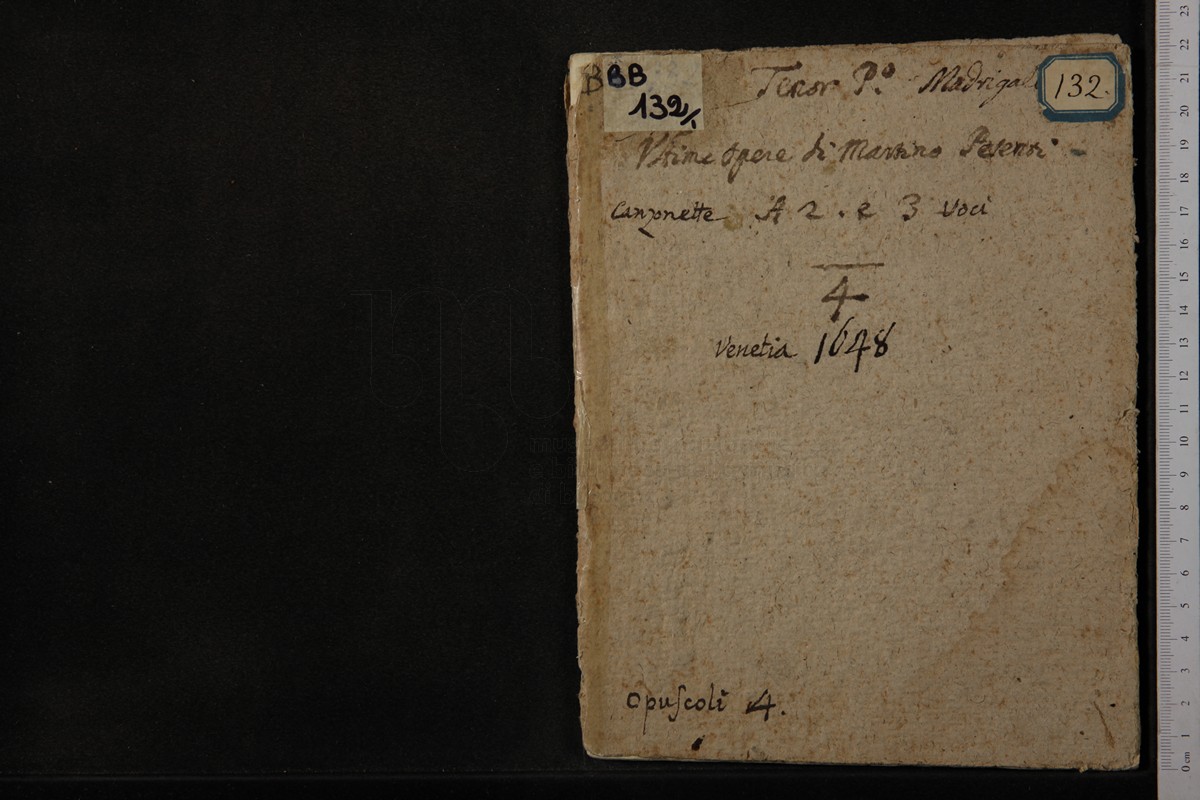 BBB
132/1
132.
Tenor P.º Madrigali
Vltime opere di Martino Pesenti
Canzonette A 2. e 3 Voci
4
Venetia 1648
Opuſcoli 4.
23
22
21
20
19
18
17
16
15
14
13
12
11
10
9
8
7
6
5
4
3
2
1
0 cm